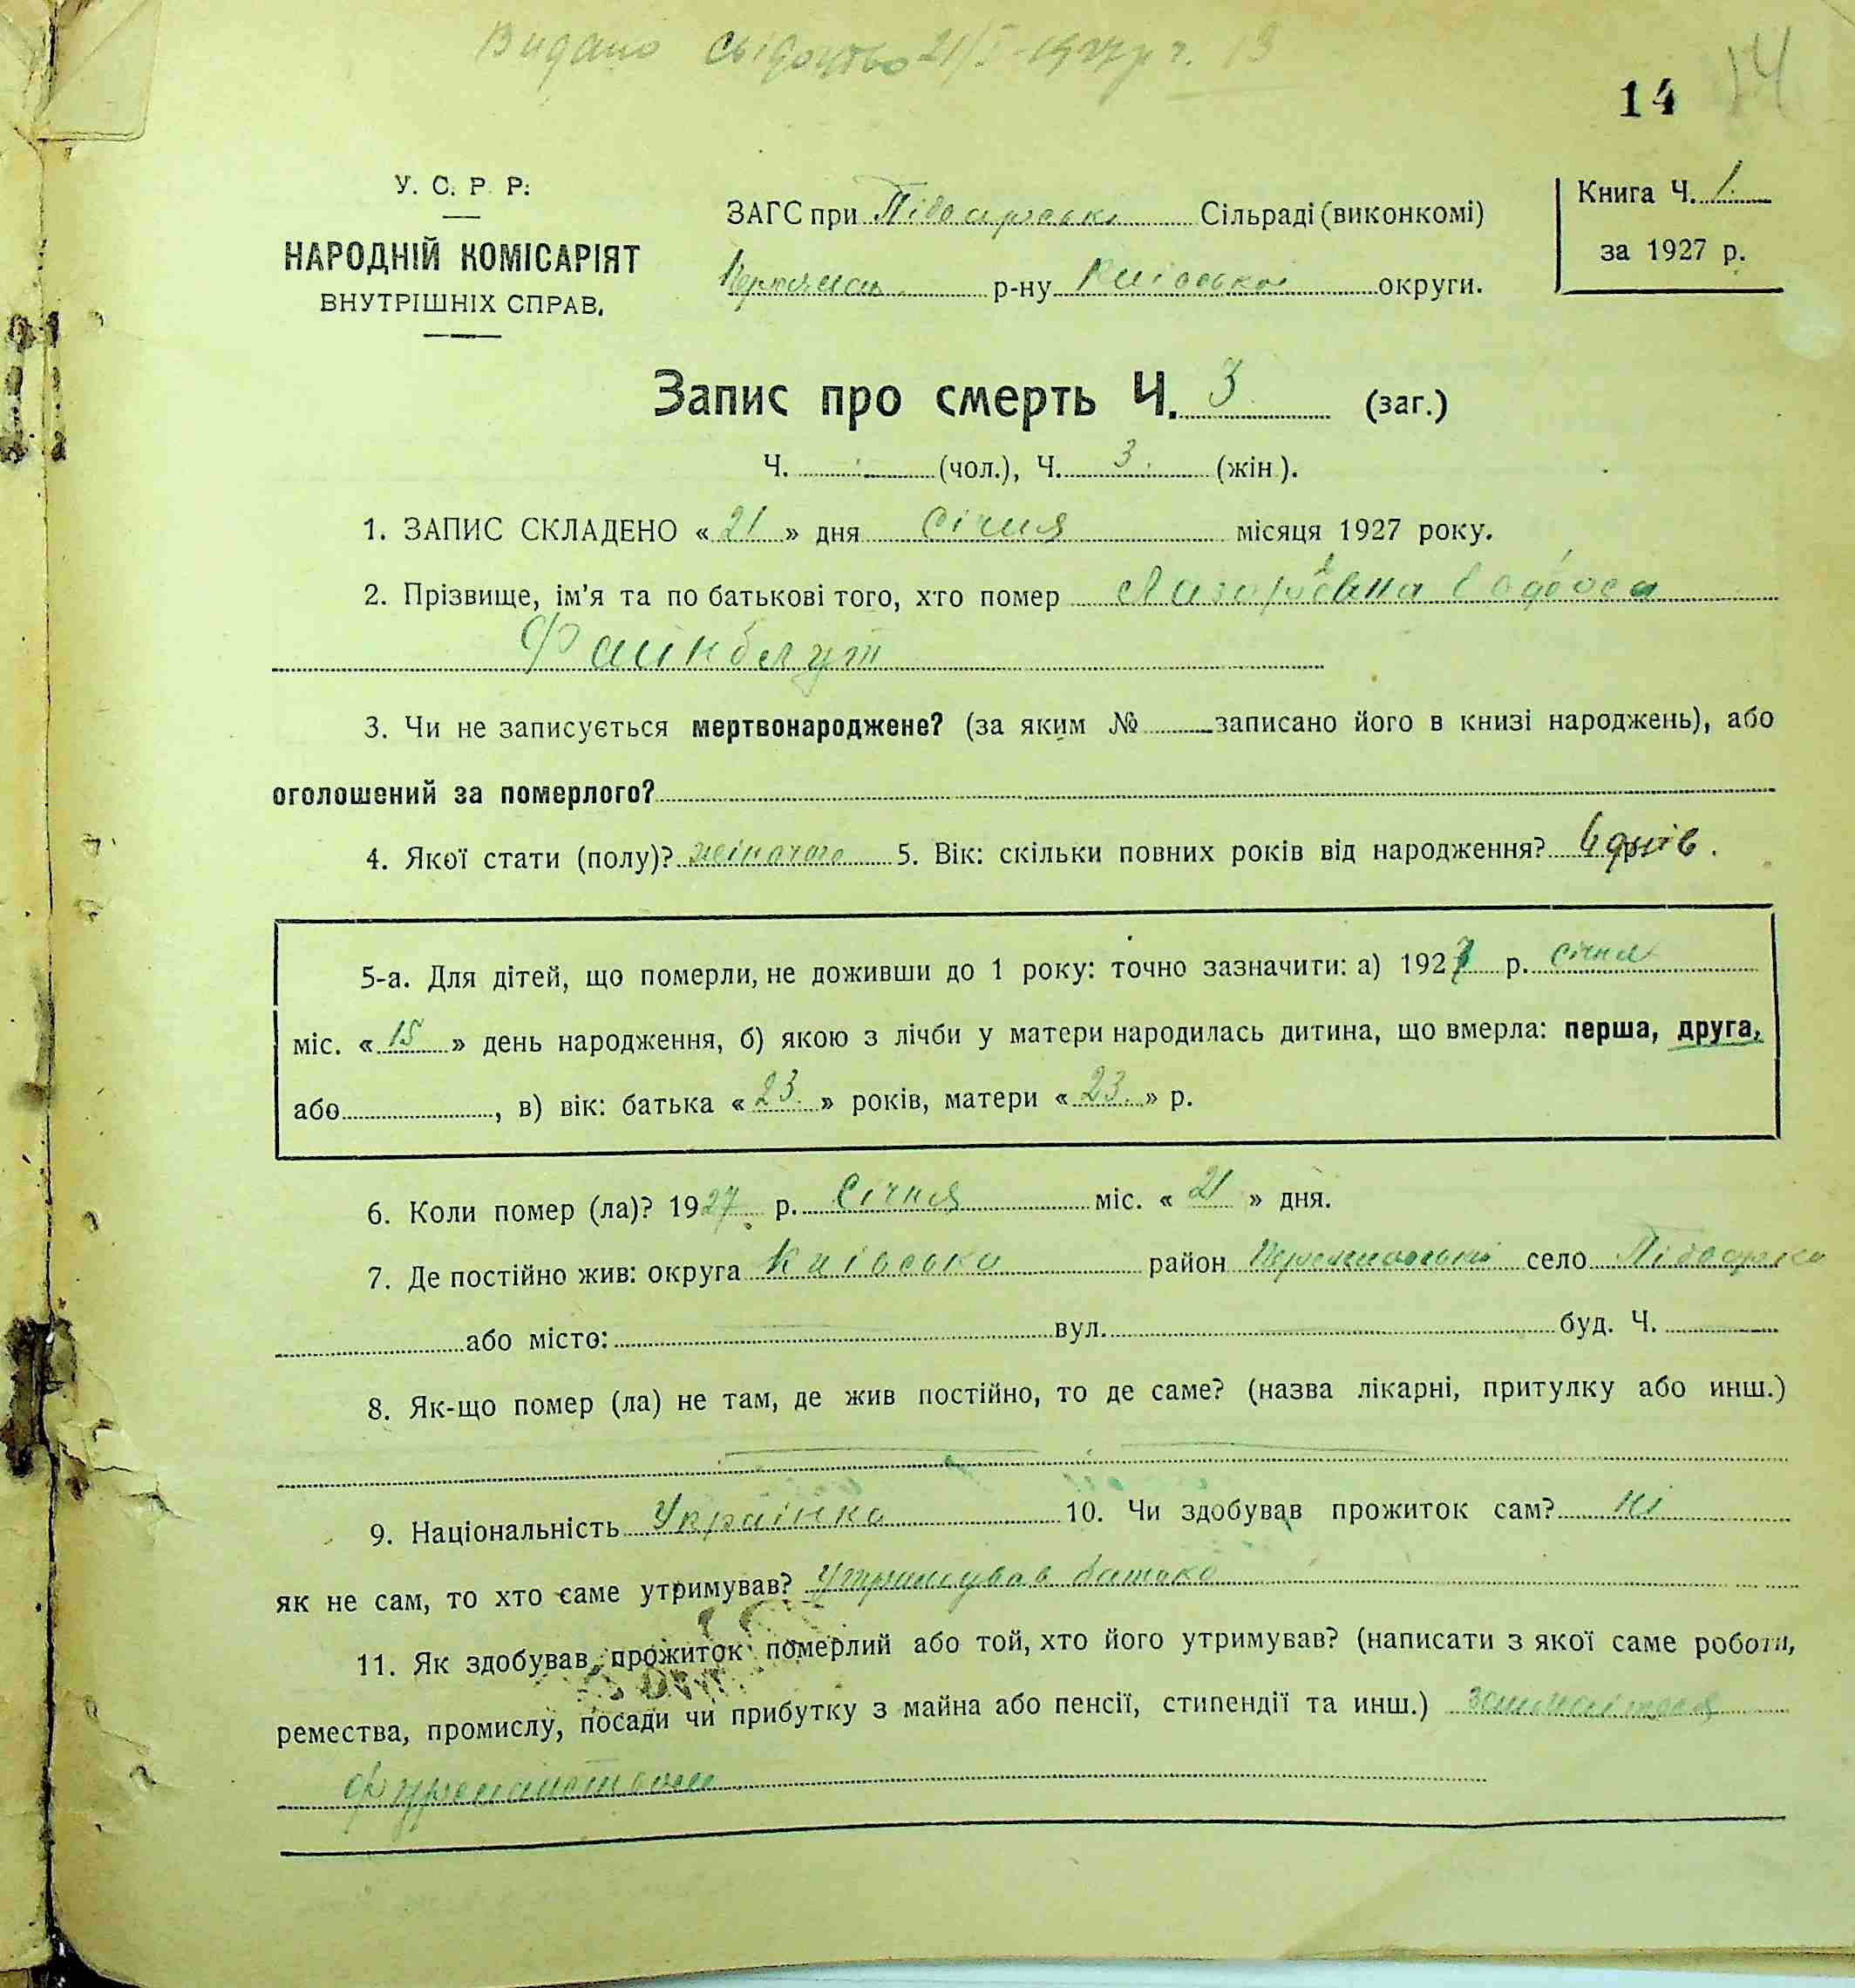 Видано свідоцтво 21/I-1927 р ч. 13
14 14
У. С. Р. Р.
НАРОДНІЙ КОМІСАРІЯТ
ВНУТРІШНІХ СПРАВ.
ЗАГС при Сільраді (виконкомі)
р-ну Київської округи.
Книга Ч. 1.
за 1927 р.
Запис про смерть Ч. 3 (заг.)
Ч. (чол.), Ч. 3. (жін.).
1. ЗАПИС СКЛАДЕНО « 21 » дня Січня місяця 1927 року.
2. Прізвище, ім'я та по батькові того, хто помер
3. Чи не записується мертвонароджене? (за яким № записано його в книзі народжень), або
оголошений за померлого?
4. Якої стати (полу)? жіночого 5. Вік: скільки повних років від народження? 6 днів.
5-а. Для дітей, що померли, не доживши до 1 року: точно зазначити: а) 1927 р. січня
міс. « 15 » день народження, б) якою з лічби у матери народилась дитина, що вмерла: перша, друга,
або , в) вік: батька « 23. » років, матери « 23. » р.
6. Коли помер (ла)? 1927 р. Січня міс. « 21 » дня.
7. Де постійно жив: округа Київська район село
або місто: вул. буд. Ч.
8. Як-що помер (ла) не там, де жив постійно, то де саме? (назва лікарні, притулку або инш.)
9. Національність Українка 10. Чи здобував прожиток сам? ні
як не сам, то хто саме утримував? Утримував батько
11. Як здобував прожиток померлий або той, хто його утримував? (написати з якої саме роботи,
ремества, промислу, посади чи прибутку з майна або пенсії, стипендії та инш.)